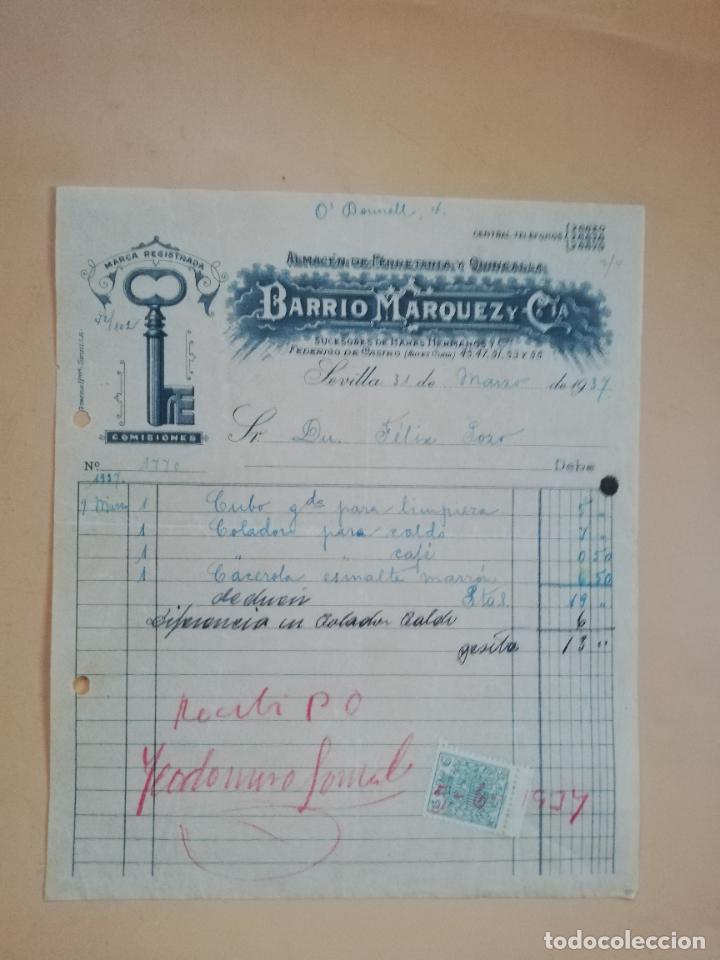 O' Donnell, 4.
CENTRAL TELEFONICA
MARCA REGISTRADA
ALMACÉN DE FERRETERIA Y QUINCALLA
BARRIO MARQUEZ Y CIA
SUCESORES DE HERMANOS Y Cª
FEDERICO DE CASTRO 45, 47, 51, 53 Y 55
COMISIONES
Sevilla 31 de Marzo de 1937.
Sr. Dn. Félix Pozo
Nº 1770 Debe
1937.
9 Marzo 1 Cubo gde para limpieza 5 "
1 Colador para caldo 7 "
1 " " café 0 50
1 Cacerola esmalte marrón 6 50
deducir Ptas. 19 "
Diferencia en Colador Caldo 6
pesetas 13 "
Recibi P O
Teodomiro
1937
todocoleccion